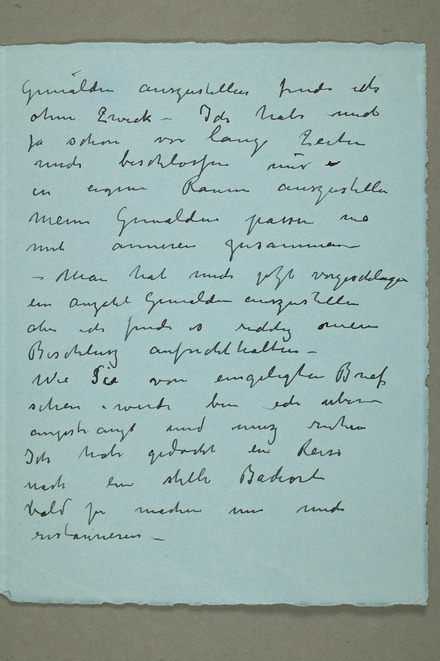 Gemälden auszustellen finde ich
ohne Zweck – Ich habe mich
ja schon vor lange Zeiten
mich beschlossen nur
in eigene Raum auszustellen
Meine Gemälden passen nie
mit anneren zusammen
– Man hat mich jetzt vorgeschlagen
ein anzahl Gemälden auszustellen
aber ich finde es richtig meinen
Beschlusz aufrechthalten –
Wie Sie von eingelegten Brief
sehen wurde bin ich
angestrangt und musz ruhen
Ich habe gedacht ein Reise
nach ein stille Badeort
bald zu machen um mich